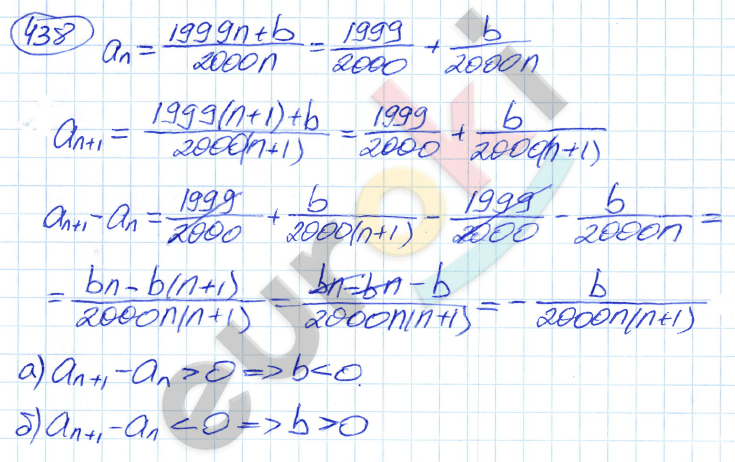 438 aₙ = (1999n+b)/(2000n) = 1999/2000 + b/(2000n)
aₙ₊₁ = (1999(n+1)+b)/(2000(n+1)) = 1999/2000 + b/(2000(n+1))
aₙ₊₁ - aₙ = 1999/2000 + b/(2000(n+1)) - 1999/2000 - b/(2000n) =
= (bn - b(n+1))/(2000n(n+1)) = (bn - bn - b)/(2000n(n+1)) = - b/(2000n(n+1))
а) aₙ₊₁ - aₙ > 0 => b < 0.
б) aₙ₊₁ - aₙ < 0 => b > 0
euroki